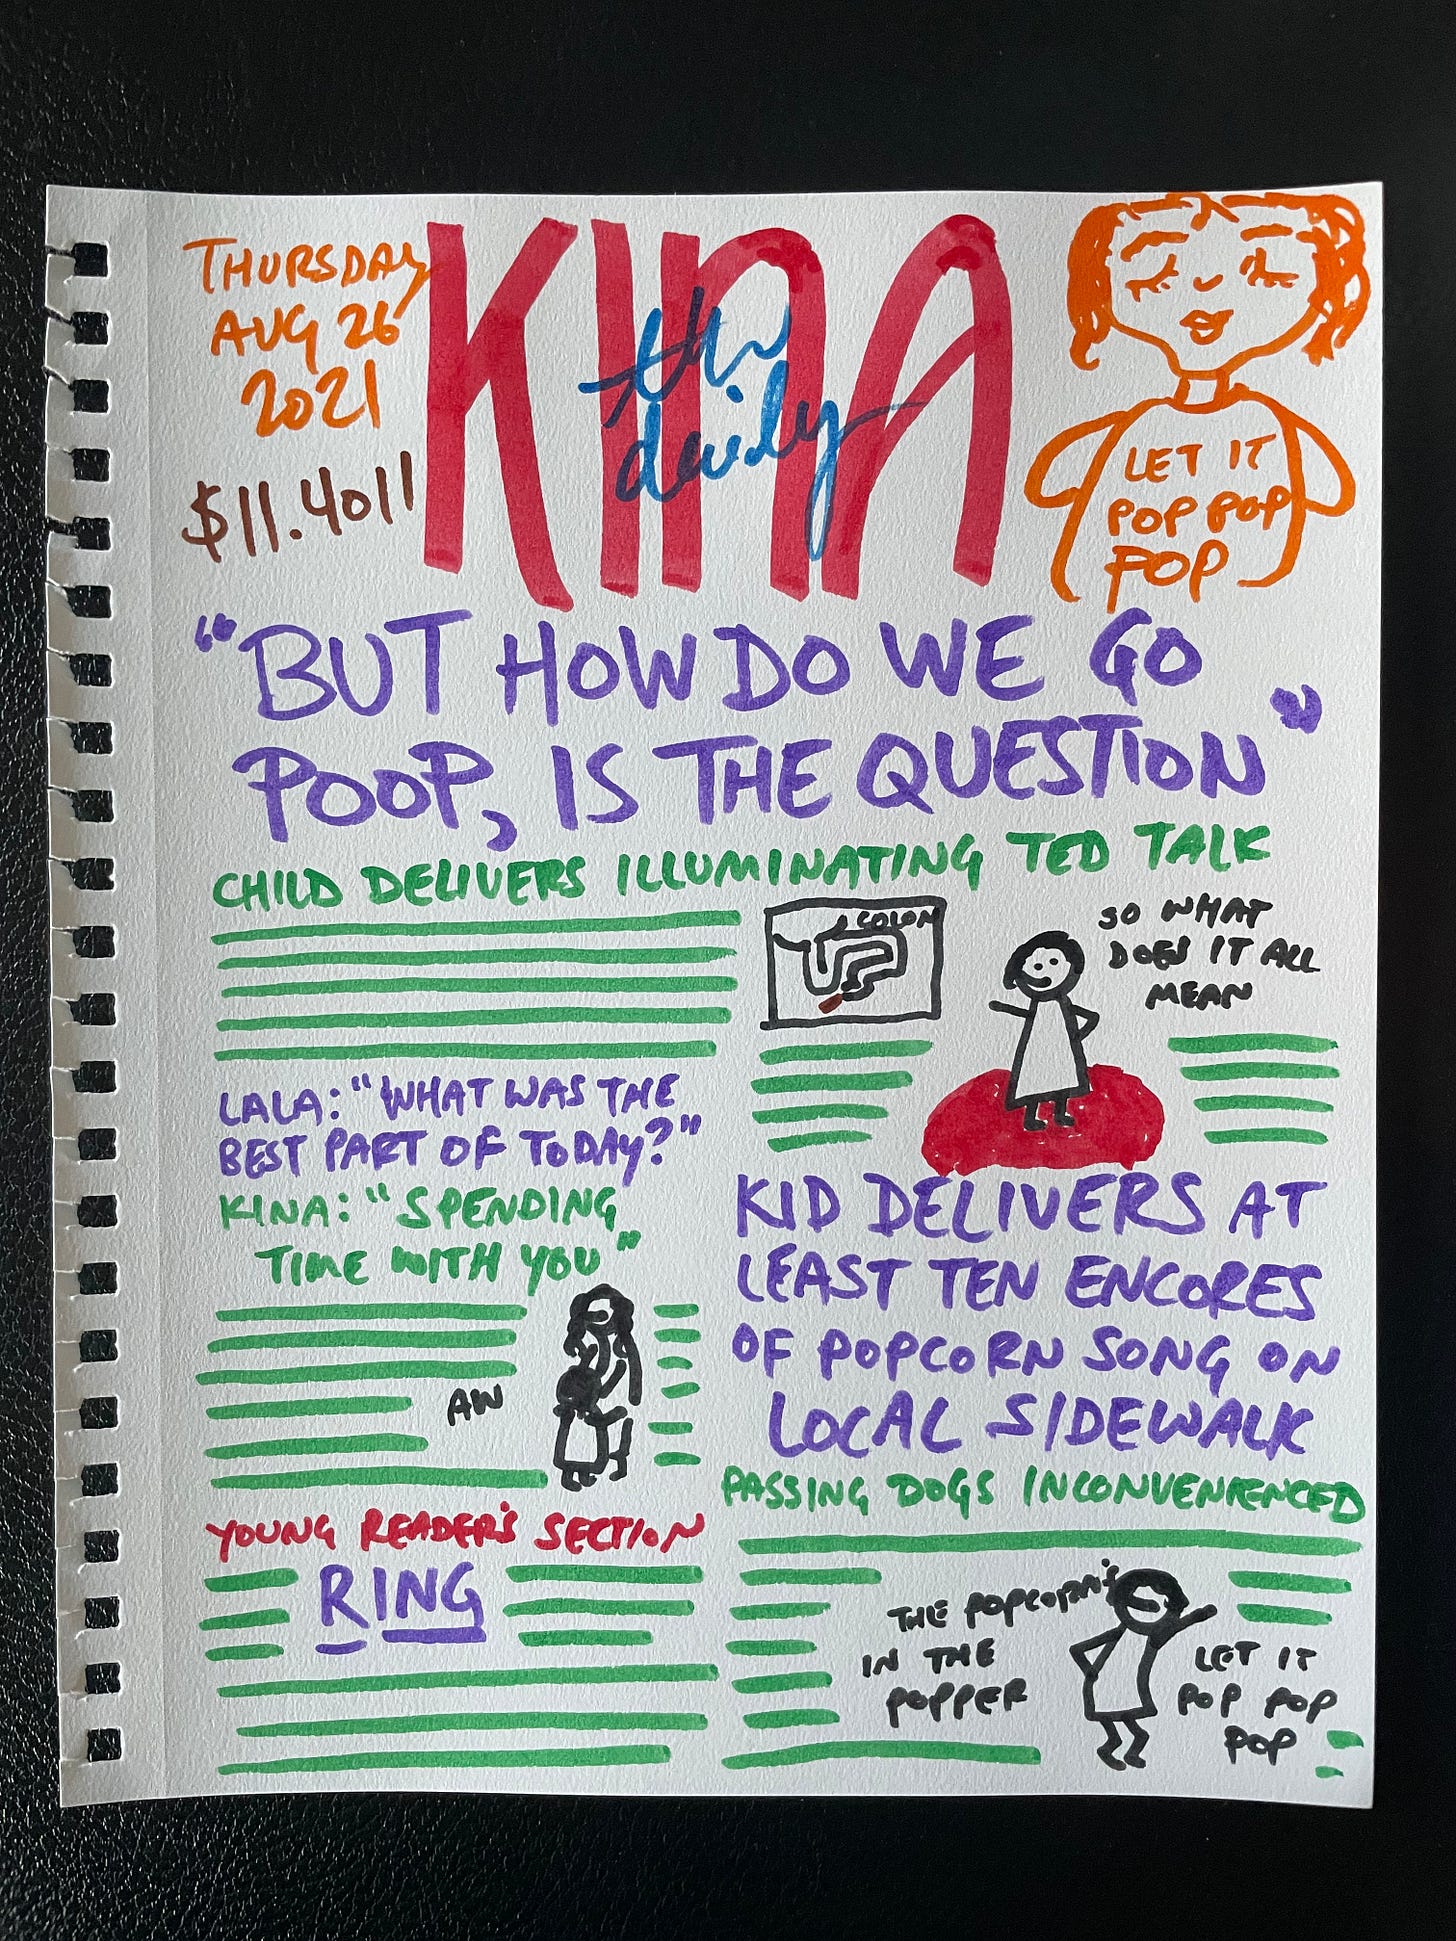 THURSDAY
AUG 26
2021
$11.4011
KINA
the
daily
LET IT
POP POP
POP
"BUT HOW DO WE GO
POOP, IS THE QUESTION"
CHILD DELIVERS ILLUMINATING TED TALK
COLON
SO WHAT
DOES IT ALL
MEAN
LALA: "WHAT WAS THE
BEST PART OF TODAY?"
KINA: "SPENDING
TIME WITH YOU"
AW
YOUNG READER'S SECTION
RING
KID DELIVERS AT
LEAST TEN ENCORES
OF POPCORN SONG ON
LOCAL SIDEWALK
PASSING DOGS INCONVENIENCED
THE POPCORN'S
IN THE
POPPER
LET IT
POP POP
POP